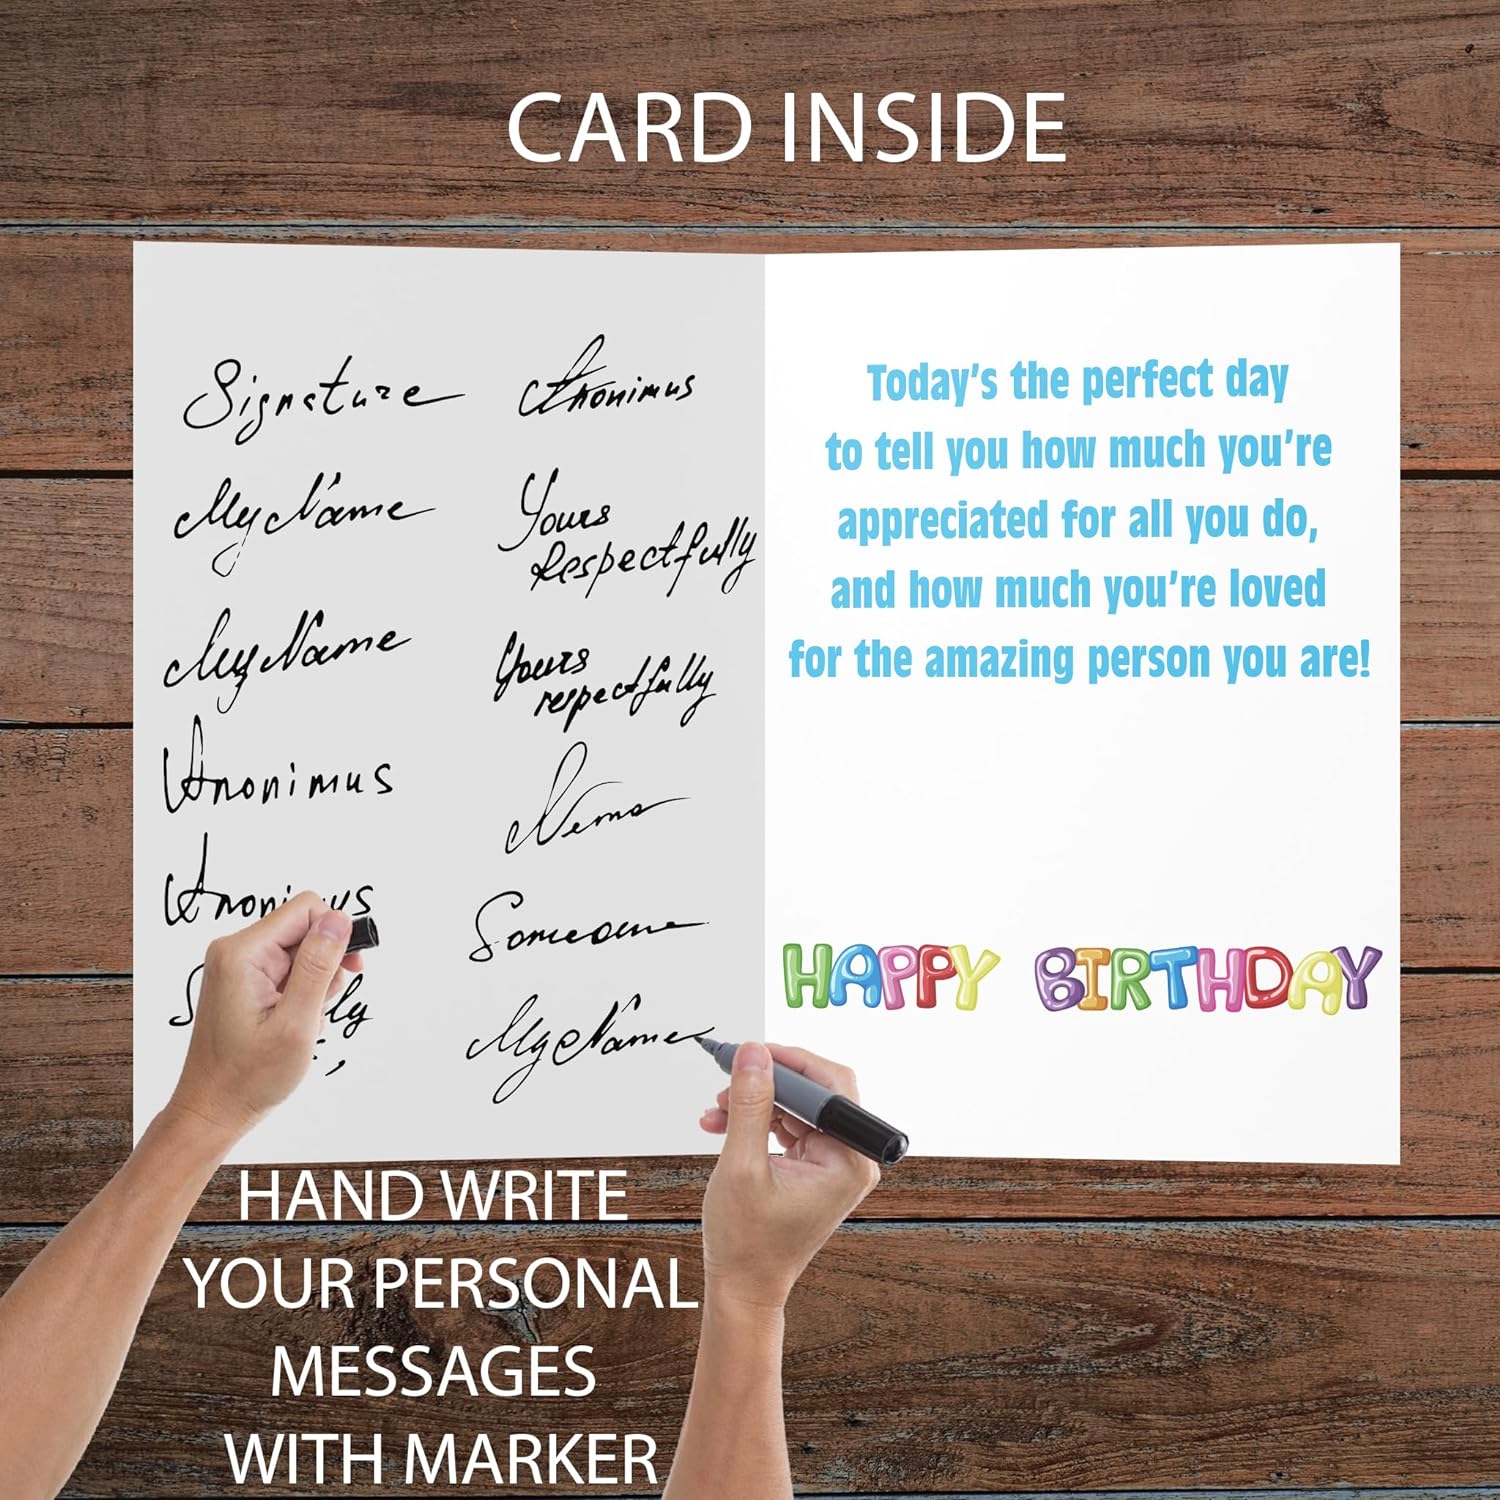 CARD INSIDE
Signature
MyName
MyName
Anonimus
Anonimus
Anonimus
Yours
Respectfully
Yours
respectfully
Nemo
Someone
MyName
Today's the perfect day
to tell you how much you're
appreciated for all you do,
and how much you're loved
for the amazing person you are!
HAPPY BIRTHDAY
HAND WRITE
YOUR PERSONAL
MESSAGES
WITH MARKER